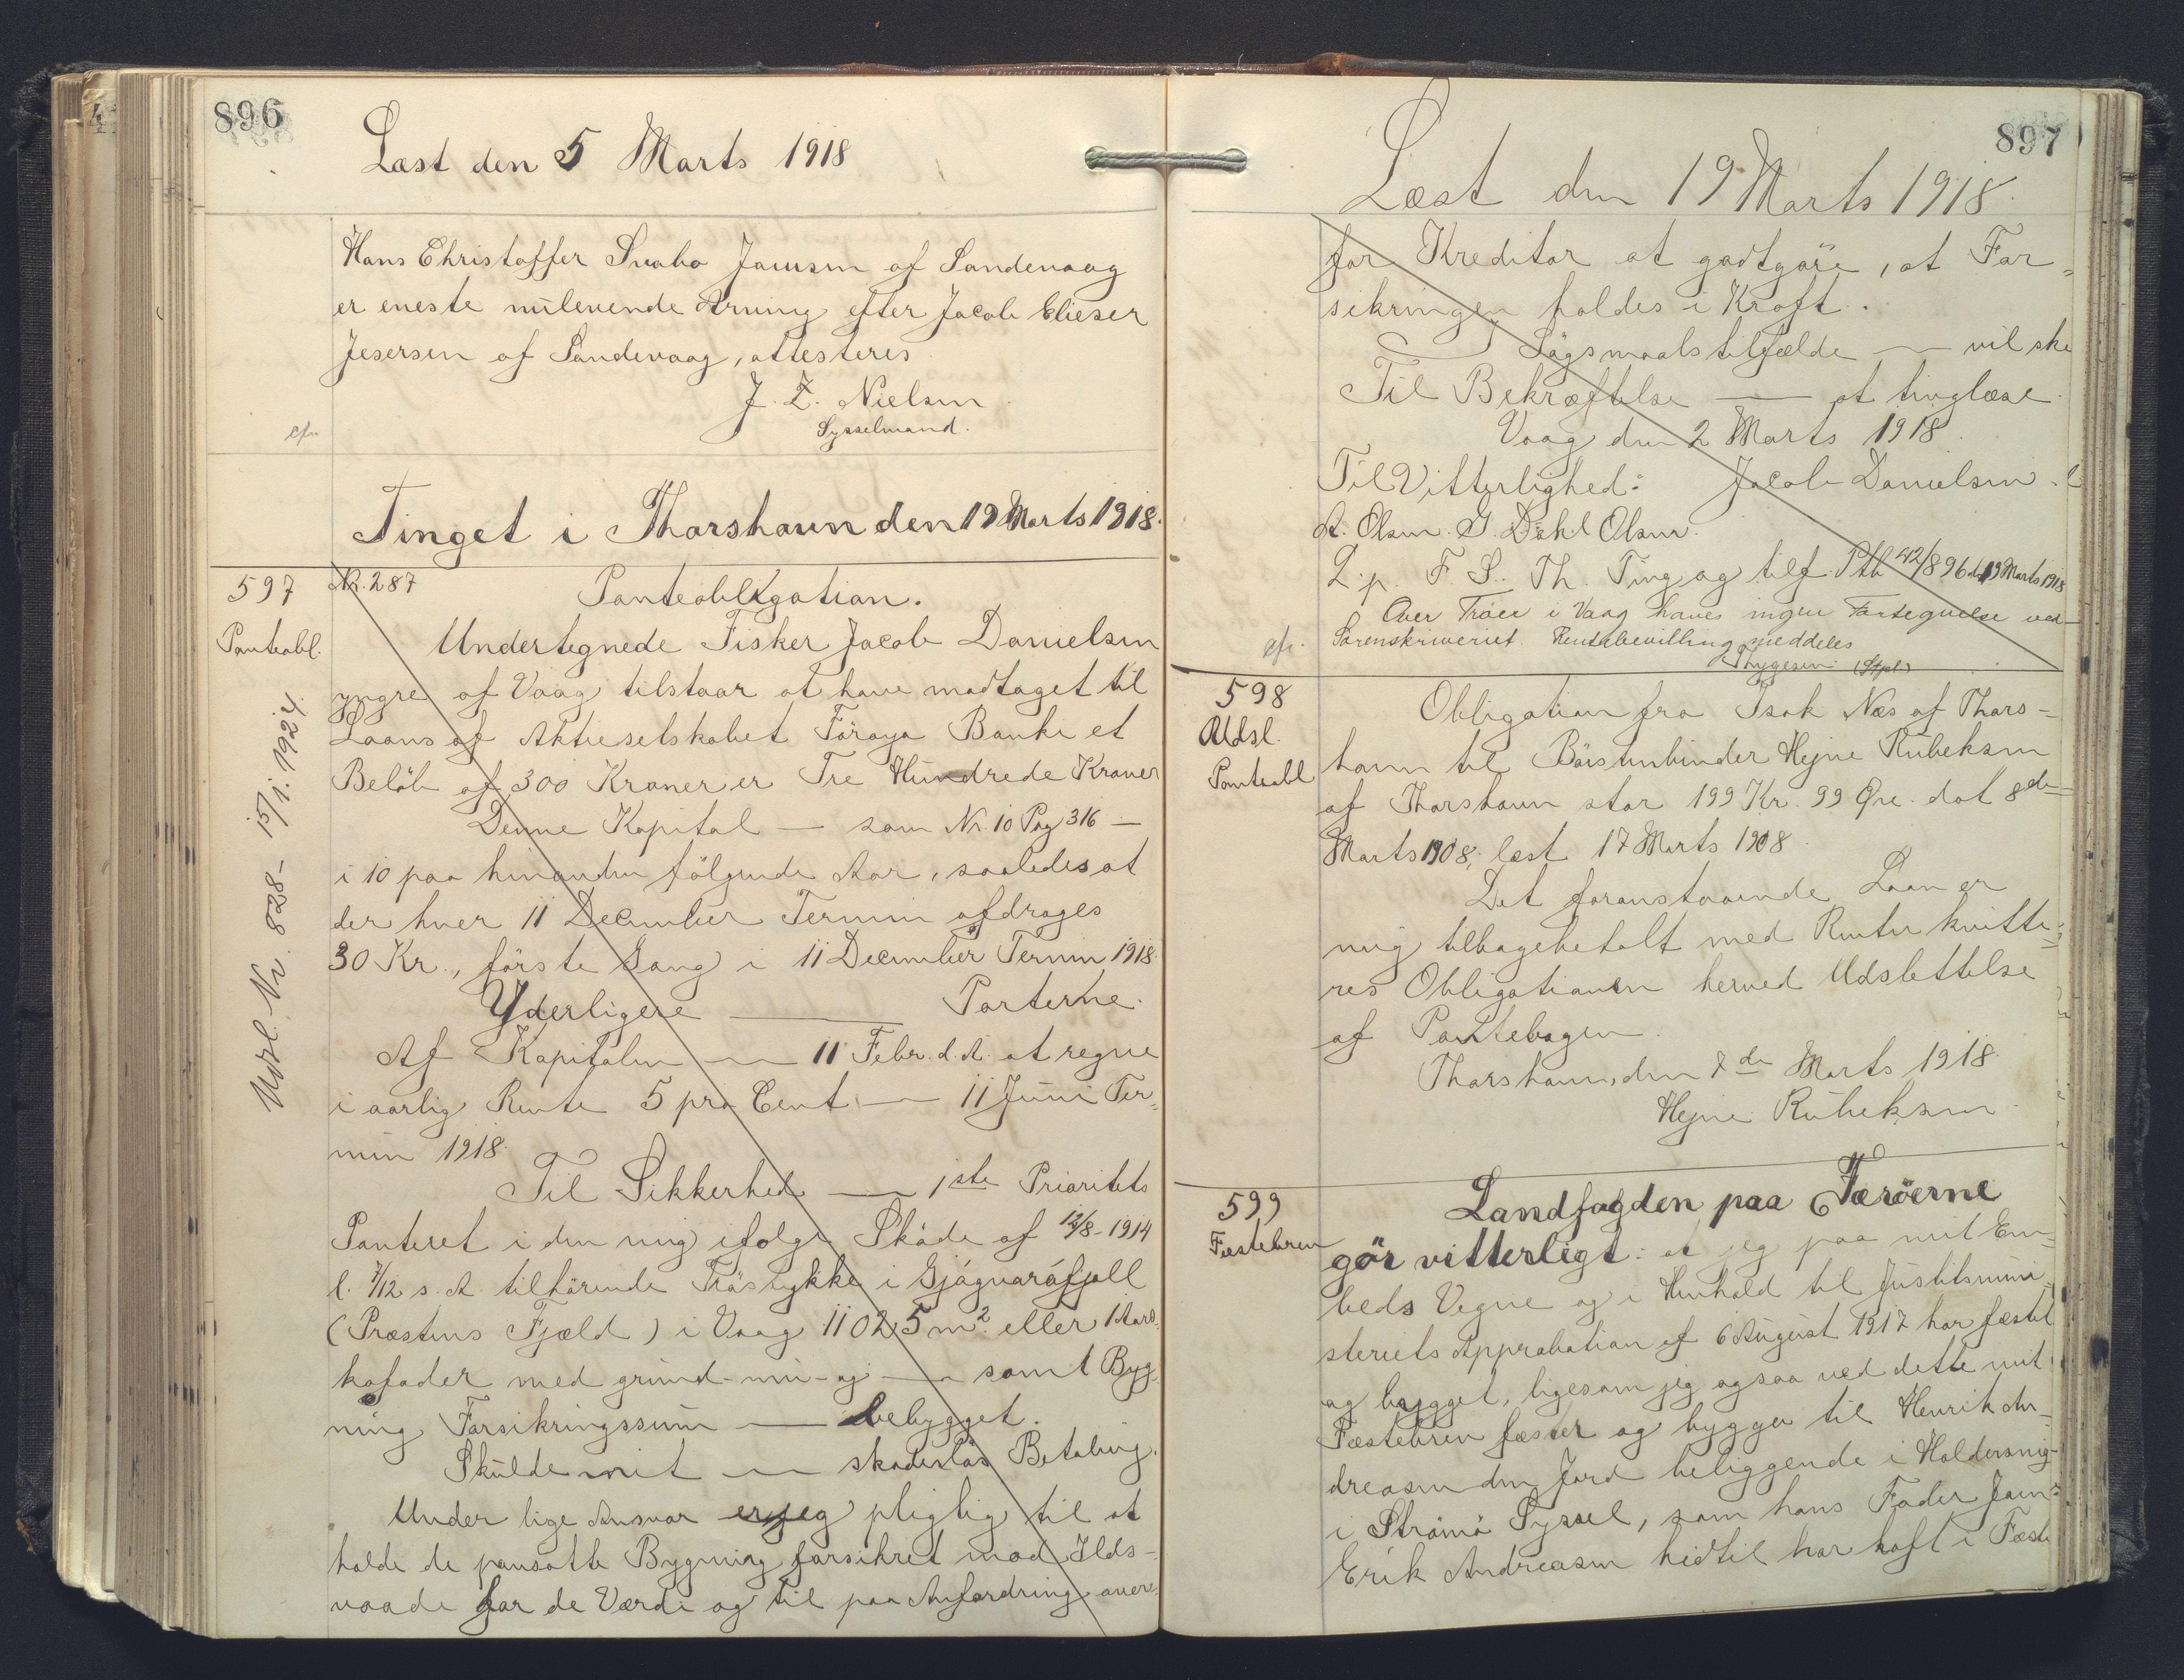 896
Læst den 5 Marts 1918
Hans Christoffer Svabo Jensen af Sandevaag
er eneste nulevende Arving efter Jacob Elieser
Jesersen af Sandevaag, attesteres
J. Z. Nielsen
Sysselmand.
cfr.
Tinget i Thorshavn den 19 Marts 1918.
597
Panteobl.
Nr. 287
Panteobligation.
Undertegnede Fisker Jacob Danielsen
yngre af Vaag tilstaar at have modtaget til
Laans af Aktieselskabet Föroya Banki et
Belöb af 300 Kroner er Tre Hundrede Kroner
Denne Kapital — som Nr. 10 Pag 316 —
i 10 paa hinanden fölgende Aar, saaledes at
der hver 11 December Termin afdrages
30 Kr., förste Gang i 11 December Termin 1918.
Yderligere — Parterne.
Af Kapitalen — 11 Febr. d. A. at regne
i aarlig Rente 5 pro Cent — 11 Juni Ter=
min 1918.
Til Sikkerhed — 1ste Prioritets
Panteret i den mig ifølge Sköde af 12/8-1914
l. 7/12 s. A. tilhörende Tröstykke i Gjágvaráfjall
(Præstens Fjæld) i Vaag 1102,5 m² eller
kafoder med grund- mur- og — samt Byg=
ning Forsikringssum — bebygget.
Skulde mit — skadeslös Betaling.
Under lige Ansvar er jeg pligtig til at
holde de pansatte Bygning forsikret mod Ilds-
vaade for de Værdi og til paa Anfordring over
Udsl. Nr. 828- 15/1. 1924.
897
Læst den 19 Marts 1918.
for Kreditor at godtgöre, at For=
sikringen holdes i Kraft.
I Sögsmaalstilfælde — vil ske
Til Bekræftelse — at tinglæse.
Vaag den 2 Marts 1918.
Til Vitterlighed: Jacob Danielsen
A. Olsen. G. Dahl Olsen.
L. p. F. S. Th. Ting og tilf. Ptb 42/896 d. 19 Marts 1918
Over Tröer i Vaag haves ingen Fortegnelse ved
Sorenskriveriet. Rentebevilling meddeles
Thygesen (Stpl)
cfr.
598
Udsl.
Panteobl
Obligation fra Isak Næs af Thors-
havn til Börstenbinder Hejne Rubeksen
af Thorshavn stor 199 Kr. 99 Øre. dat 8de
Marts 1908, læst 17 Marts 1908.
Det foranstaaende Laan er
mig tilbagebetalt med Renter kvitte=
res Obligationen herved Udslettelse
af Pantebogen.
Thorshavn, den 7de Marts 1918.
Hejne Rubeksen.
599
Fæstebrev
Landfogden paa Færöerne
gör vitterligt: at jeg paa mit Em=
beds Vegne og i Henhold til Justitsmini=
steriets Approbation af 6 August 1917 har fæstet
og bygget, ligesom jeg ogsaa ved dette mit
Fæstebrev fæster og bygger til Henrik An=
dreasen den Jord beliggende i Haldersvig
i Strömö Syssel, som hans Fader Joen
Erik Andreasen hidtil har haft i Fæste